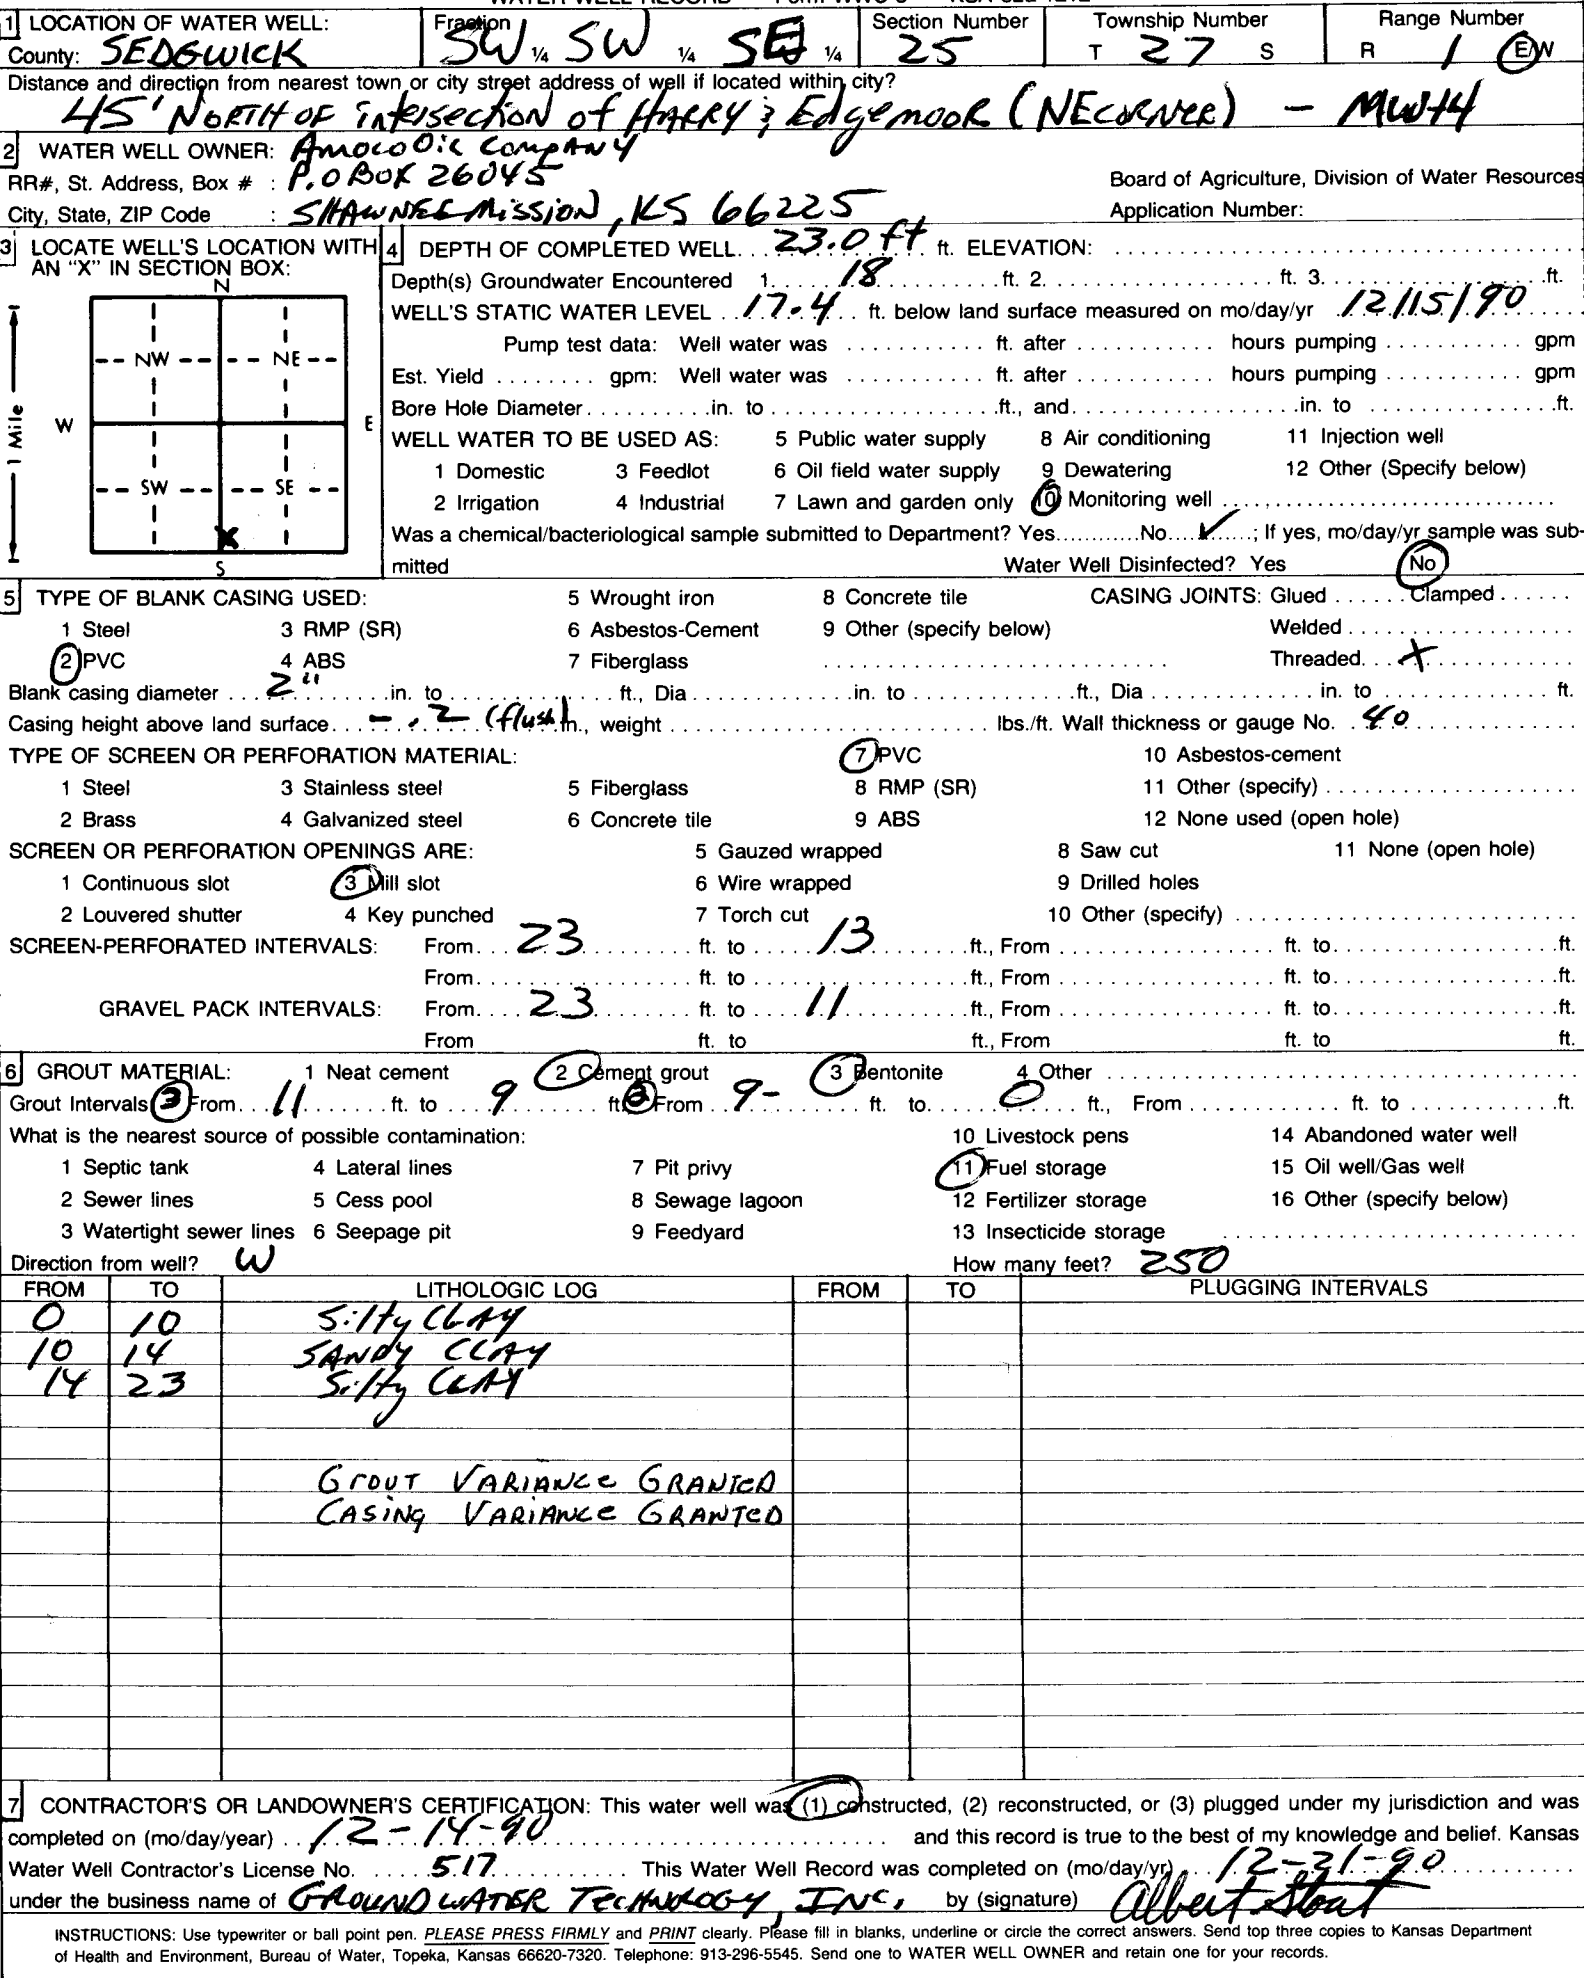 1 LOCATION OF WATER WELL: Fraction Section Number Township Number Range Number
County: SEDGWICK SW ¼ SW ¼ SE ¼ 25 T 27 S R 1 E/W
Distance and direction from nearest town or city street address of well if located within city?
45' NORTH OF intersection of HARRY & Edgemoor (NE CORNER) - MW#4
2 WATER WELL OWNER: Amoco Oil Company
RR#, St. Address, Box # : P.O Box 26045 Board of Agriculture, Division of Water Resources
City, State, ZIP Code : SHAWNEE Mission, KS 66225 Application Number:
3 LOCATE WELL'S LOCATION WITH AN "X" IN SECTION BOX:
N
NW NE
W E
SW SE
X
S
1 Mile
4 DEPTH OF COMPLETED WELL. . . 23.0 ft ft. ELEVATION:
Depth(s) Groundwater Encountered 1. 18 ft. 2. ft. 3. ft.
WELL'S STATIC WATER LEVEL 17.4 ft. below land surface measured on mo/day/yr 12/15/90
Pump test data: Well water was ft. after hours pumping gpm
Est. Yield gpm: Well water was ft. after hours pumping gpm
Bore Hole Diameter in. to ft., and in. to ft.
WELL WATER TO BE USED AS: 5 Public water supply 8 Air conditioning 11 Injection well
1 Domestic 3 Feedlot 6 Oil field water supply 9 Dewatering 12 Other (Specify below)
2 Irrigation 4 Industrial 7 Lawn and garden only 10 Monitoring well
Was a chemical/bacteriological sample submitted to Department? Yes No ✓; If yes, mo/day/yr sample was sub-
mitted Water Well Disinfected? Yes No
5 TYPE OF BLANK CASING USED: 5 Wrought iron 8 Concrete tile CASING JOINTS: Glued Clamped
1 Steel 3 RMP (SR) 6 Asbestos-Cement 9 Other (specify below) Welded
2 PVC 4 ABS 7 Fiberglass Threaded X
Blank casing diameter 2" in. to ft., Dia in. to ft., Dia in. to ft.
Casing height above land surface -.2 (flush) in., weight lbs./ft. Wall thickness or gauge No. 40
TYPE OF SCREEN OR PERFORATION MATERIAL: 7 PVC 10 Asbestos-cement
1 Steel 3 Stainless steel 5 Fiberglass 8 RMP (SR) 11 Other (specify)
2 Brass 4 Galvanized steel 6 Concrete tile 9 ABS 12 None used (open hole)
SCREEN OR PERFORATION OPENINGS ARE: 5 Gauzed wrapped 8 Saw cut 11 None (open hole)
1 Continuous slot 3 Mill slot 6 Wire wrapped 9 Drilled holes
2 Louvered shutter 4 Key punched 7 Torch cut 10 Other (specify)
SCREEN-PERFORATED INTERVALS: From 23 ft. to 13 ft., From ft. to ft.
From ft. to ft., From ft. to ft.
GRAVEL PACK INTERVALS: From 23 ft. to 11 ft., From ft. to ft.
From ft. to ft., From ft. to ft.
6 GROUT MATERIAL: 1 Neat cement 2 Cement grout 3 Bentonite 4 Other
Grout Intervals 3 From 11 ft. to 9 ft. From 9- ft. to 0 ft., From ft. to ft.
What is the nearest source of possible contamination: 10 Livestock pens 14 Abandoned water well
1 Septic tank 4 Lateral lines 7 Pit privy 11 Fuel storage 15 Oil well/Gas well
2 Sewer lines 5 Cess pool 8 Sewage lagoon 12 Fertilizer storage 16 Other (specify below)
3 Watertight sewer lines 6 Seepage pit 9 Feedyard 13 Insecticide storage
Direction from well? W How many feet? 250
FROM TO LITHOLOGIC LOG FROM TO PLUGGING INTERVALS
0 10 Silty CLAY
10 14 SANDY CLAY
14 23 Silty CLAY
GROUT VARIANCE GRANTED
CASING VARIANCE GRANTED
7 CONTRACTOR'S OR LANDOWNER'S CERTIFICATION: This water well was (1) constructed, (2) reconstructed, or (3) plugged under my jurisdiction and was
completed on (mo/day/year) 12-14-90 and this record is true to the best of my knowledge and belief. Kansas
Water Well Contractor's License No. 517 This Water Well Record was completed on (mo/day/yr) 12-21-90
under the business name of GROUNDWATER TECHNOLOGY, INC. by (signature) Albert Stout
INSTRUCTIONS: Use typewriter or ball point pen. PLEASE PRESS FIRMLY and PRINT clearly. Please fill in blanks, underline or circle the correct answers. Send top three copies to Kansas Department
of Health and Environment, Bureau of Water, Topeka, Kansas 66620-7320. Telephone: 913-296-5545. Send one to WATER WELL OWNER and retain one for your records.